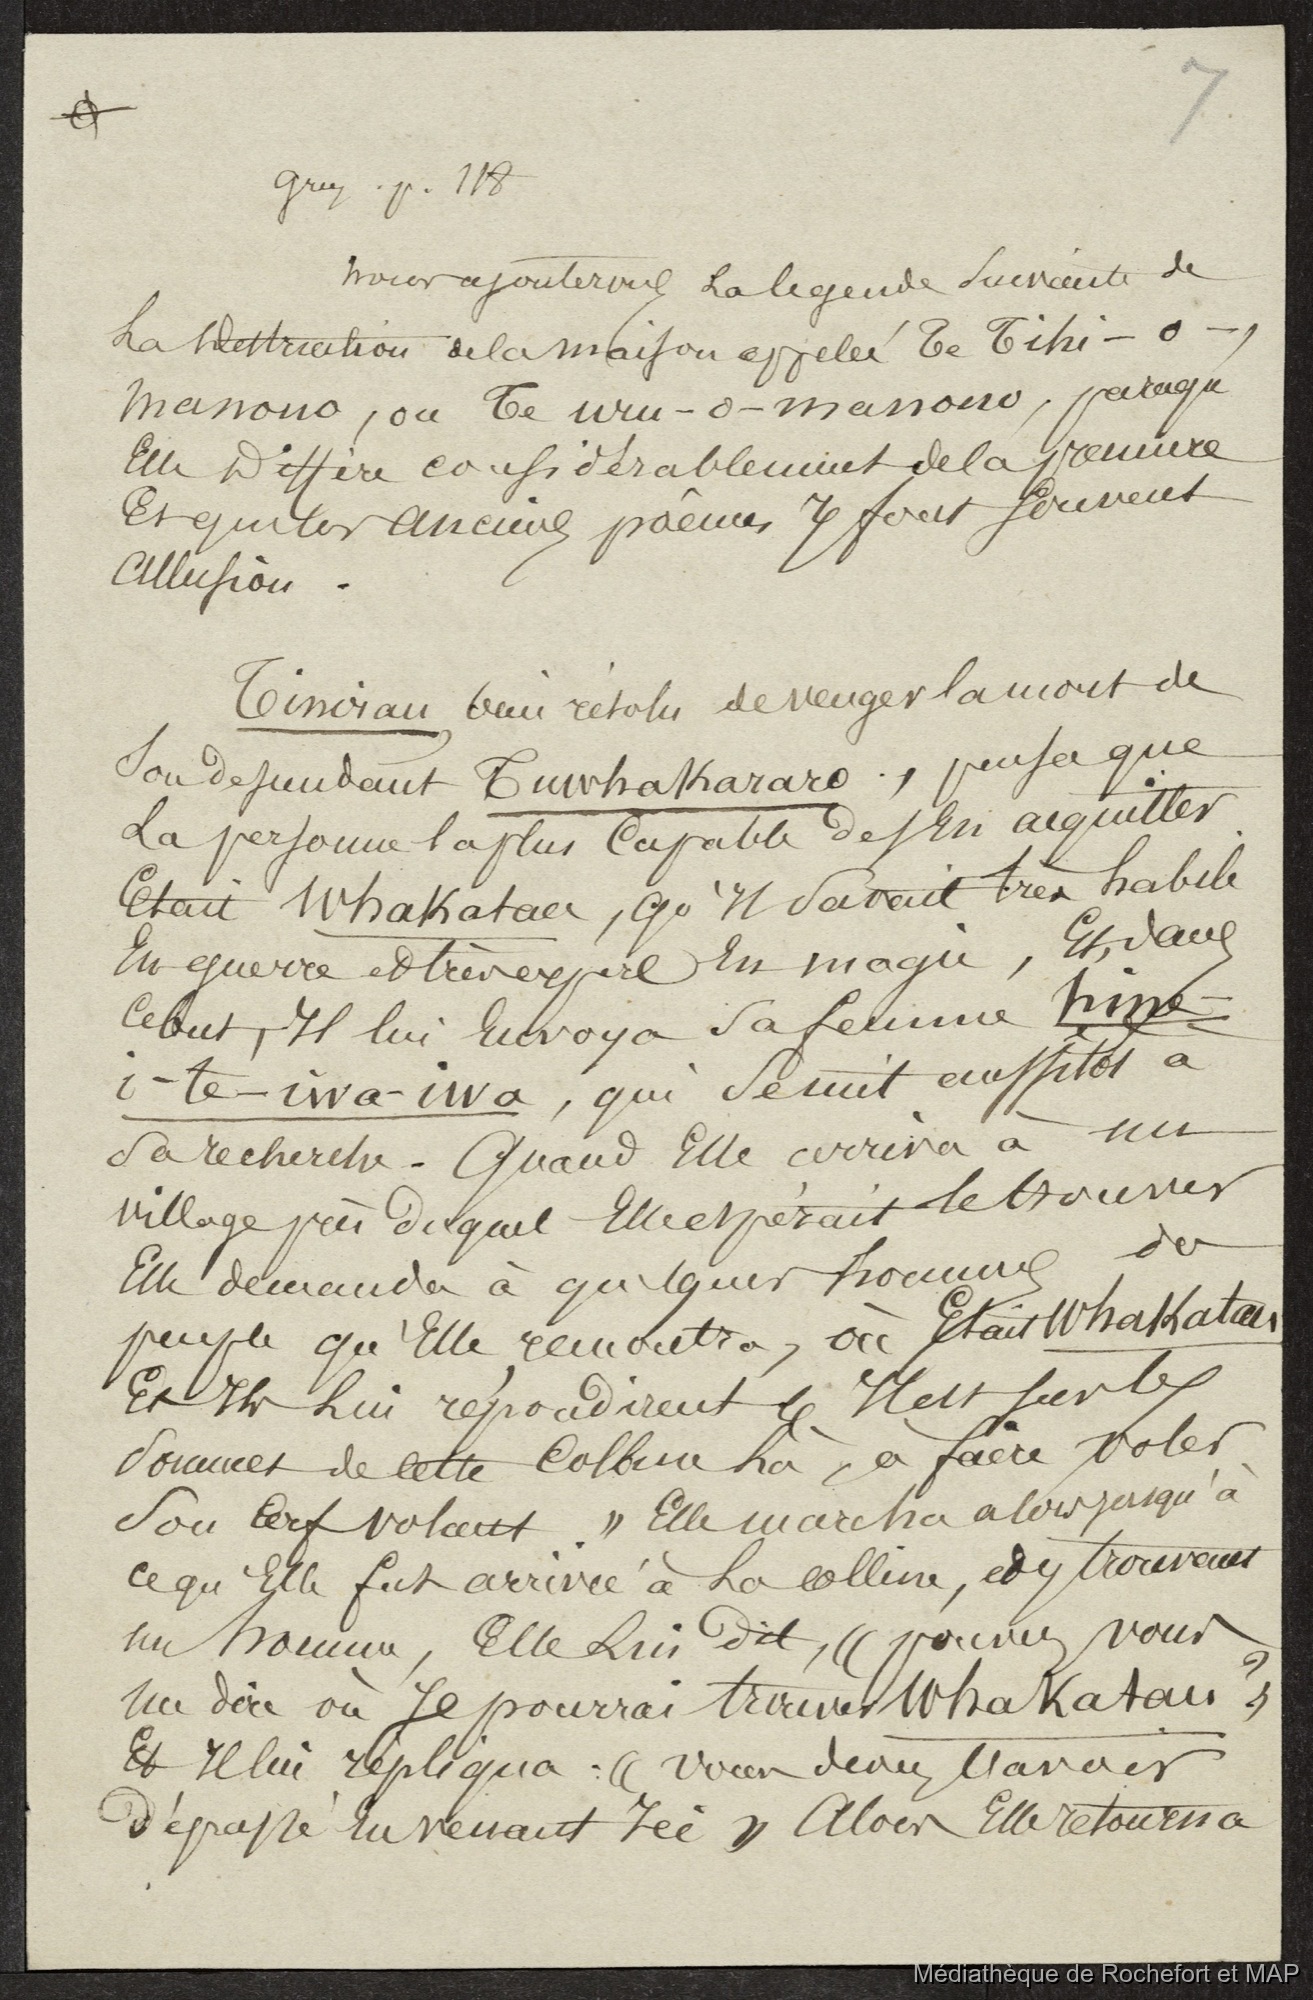 7
grey . p. 118
nous ajouterons la legende suivante de
la destruction de la maison appeleé Te Tihi - o -
manono, ou Te uru - o - manono, parcequ'
Elle Diffère considérablement de la premiere
Et que les Anciens poêmes y font souvent
Allusion .
Tinirau bien résolu de venger la mort de
Son descendant Tuwhakararo ., pensa que
La personne la plus Capable de s'En acquitter
Etait Whakatau, qu'Il savait très habile
En guerre et très expert En magie, Et, dans
ce but, Il lui Envoya sa femme hine -
i - te - iwa - iwa, qui se mit aussitôt a
sa recherche . Quand Elle arriva à un
village près duquel Elle espérait le trouver
Elle demanda à quelques hommes du
peuple qu'Elle rencontra, où Etait Whakatau
Et Ils Lui répondirent « Il est sur le
sommet de cette Colline là, à faire voler
son cerf volant » Elle marcha alors jusqu'à
ce qu'Elle fut arriveé à La colline, et y trouvant
un homme, Elle Lui dit, « pouvez vous
me dire où Je pourrai trouver Whakatau ? »
Et Il lui répliqua : « vous devez l'avoir
dépassé En venant Ici » Alors Elle retourna
Médiathèque de Rochefort et MAP